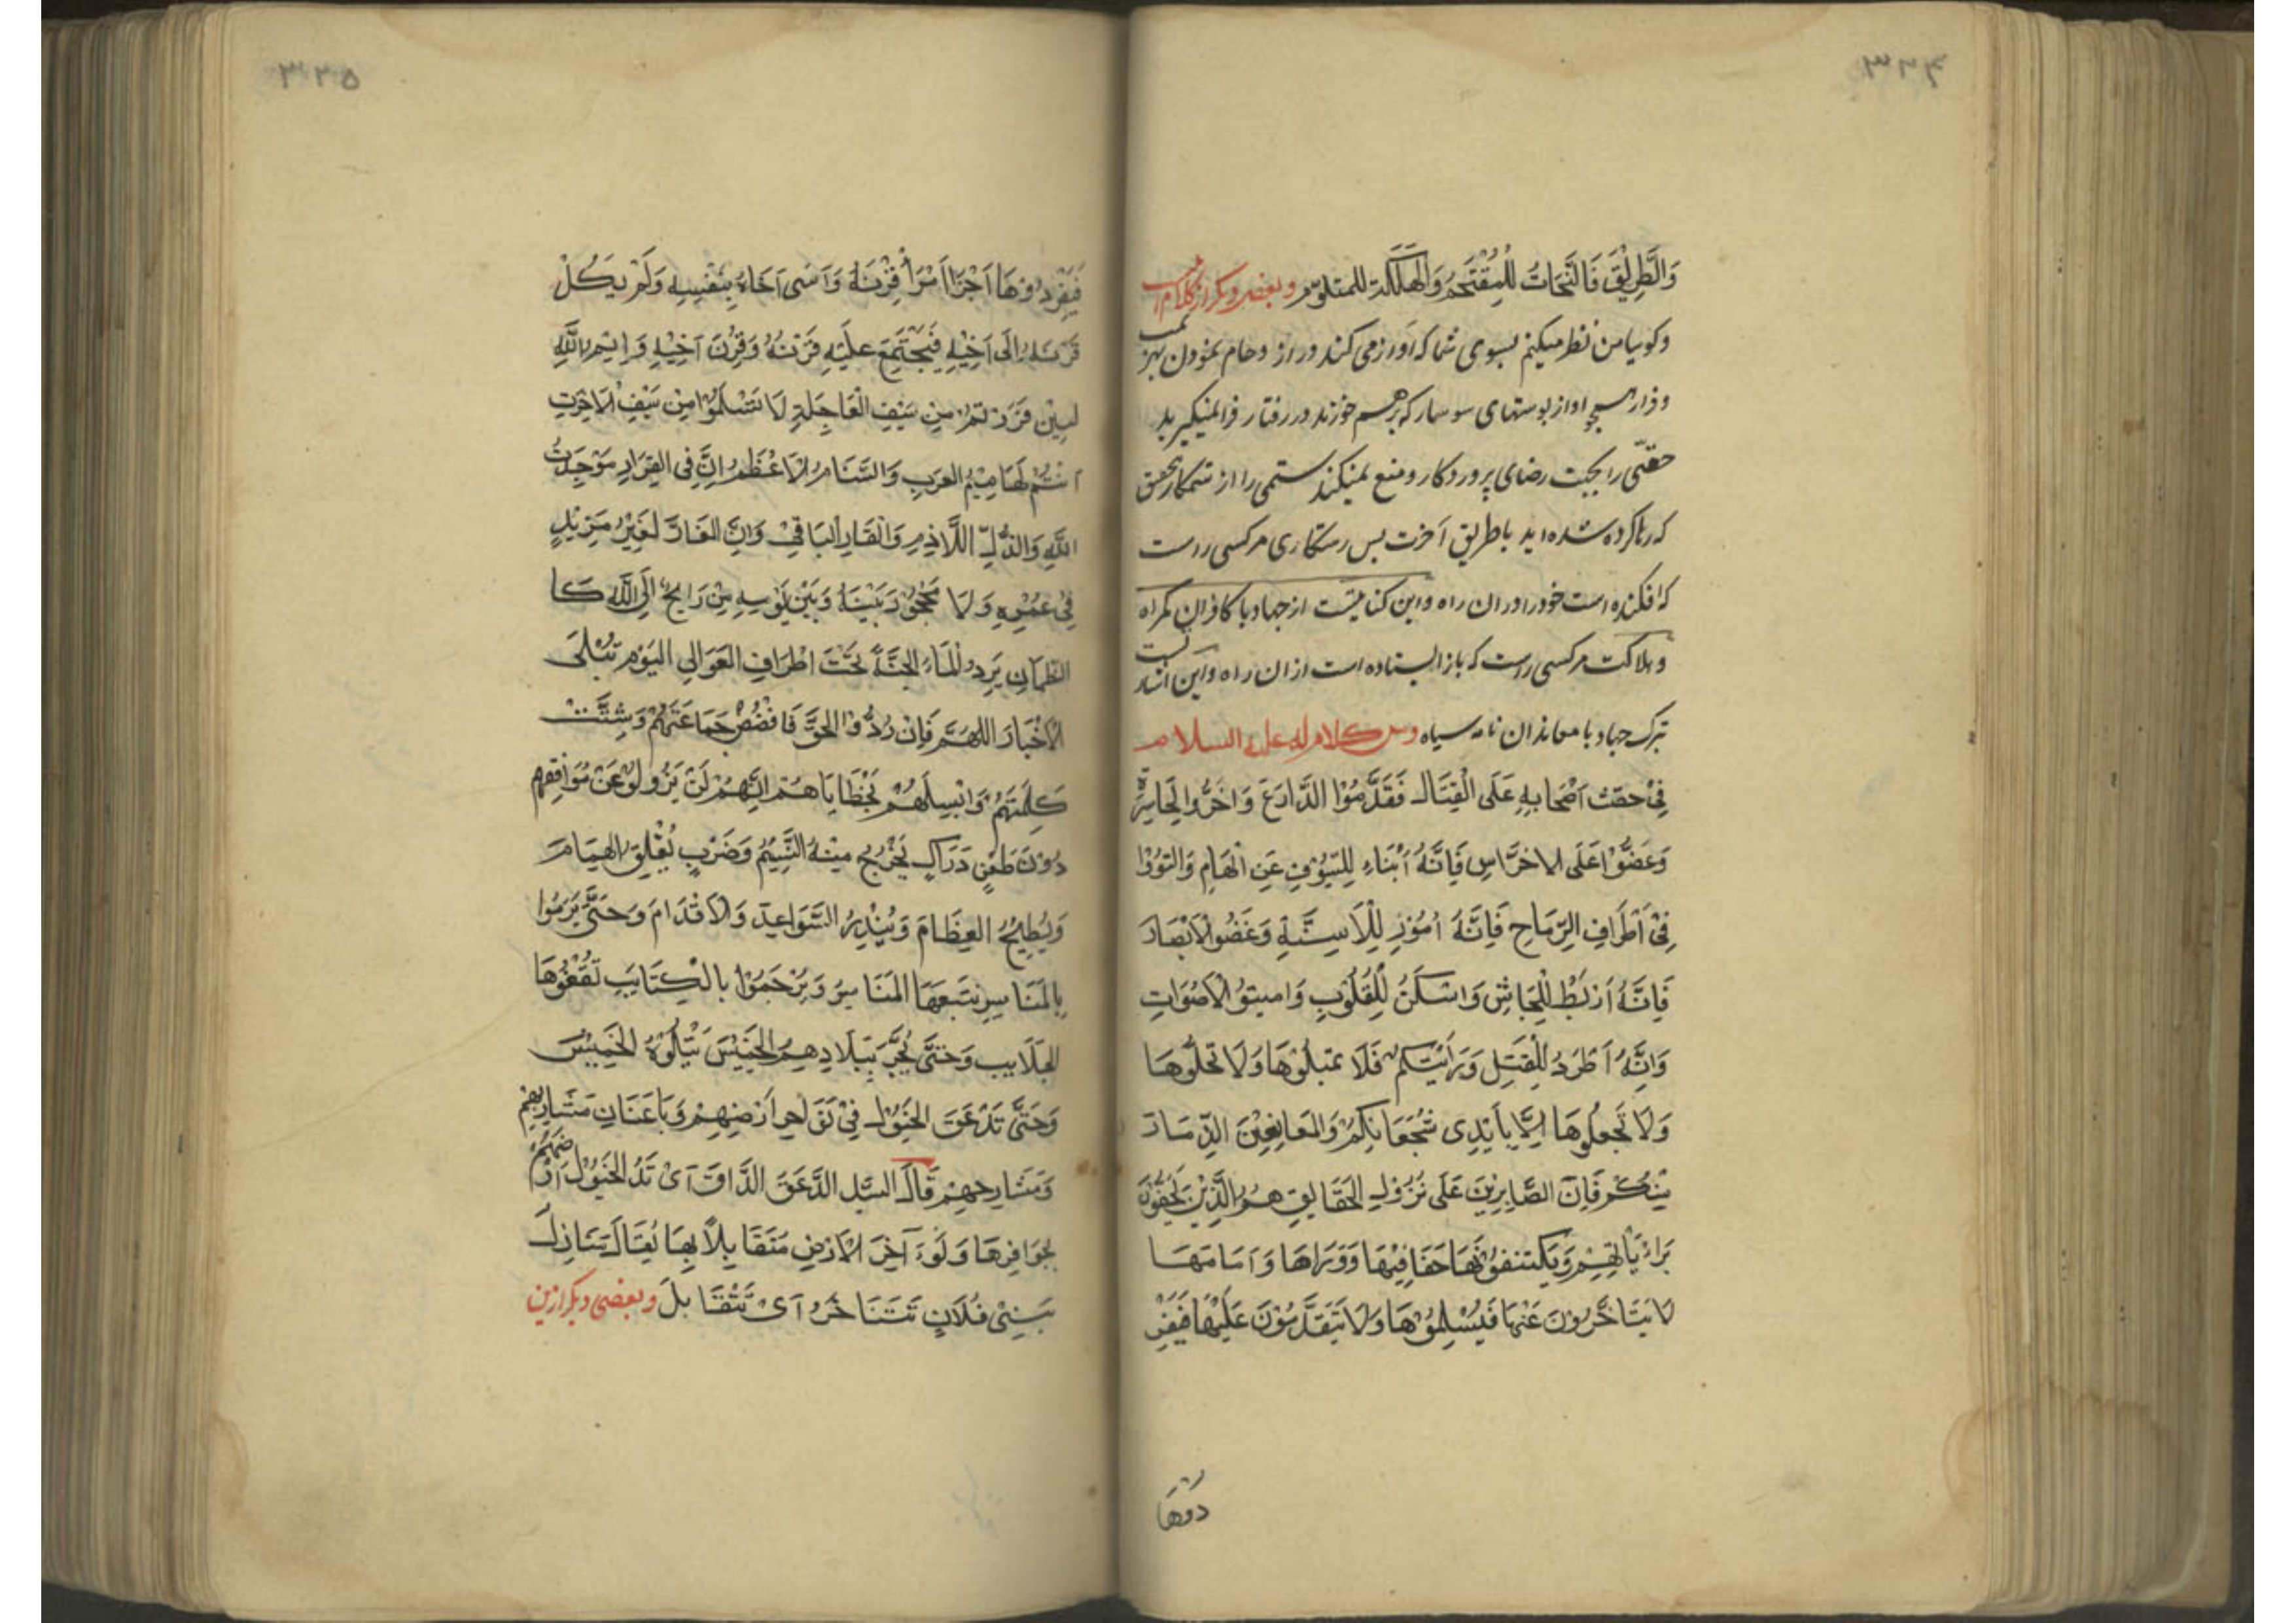 ۳۲۴
وَالطَّرِيْقَ فَالنَّجَاتُ لِلْمُقْتَحِمِ وَالْهَلَكَةُ لِلْمُتَلَوِّمِ وبعضی دیکر از کلام
وکویا من نظر میکنم بسوی شما که آواز می کنید در ازدحام نمودن
وفرار همچو اواز پوستهای سوسمار که برهم خورند در رفتار فرا نمیکیرید
حقی را بجهت رضای پروردکار و منع نمیکنید ستمی را از ستمکار بتحقیق
که رها کرده شده اید با طریق آخرت پس رستکاری مرکسی راست
که افکنده است خود را در ان راه واین کنایتست از جهاد با کافران کمراه
وهلاکت مرکسی راست که باز ایستاده است از ان راه واین
بترک جهاد با معاندان نامه سیاه ومن كلام له عليه السلام
فِیْ حَثِّ اَصْحَابِهِ عَلَی الْقِتَالِ فَقَدِّمُوْا الدَّارِعَ وَاَخِّرُوا الْحَاسِرَ
وَعَضُّوْا عَلَی الاضْرَاسِ فَاِنَّهُ اَنْبَاءُ لِلسُّيُوْفِ عَنِ الْهَامِ وَالتَوُوْا
فِیْ اَطْرَافِ الرِّمَاحِ فَاِنَّهُ اَمْوَرُ لِلْاَسِنَّةِ وَغُضُّوا الْاَبْصَارَ
فَاِنَّهُ اَرْبَطُ لِلْجَاشِ وَاسْكَنُ لِلْقُلُوْبِ وَامِيتُوْا الْاَصْوَاتِ
وَاِنَّهُ اَطْرَدُ لِلْفَشَلِ وَرَايَتَكُمْ فَلَا تميلُوْهَا وَلَا تخلّوْهَا
وَلَا تَجْعَلُوْهَا اِلَّا بِاَيْدِی شُجْعَانِكُمْ وَالْمَانِعِيْنَ الذِّمَارَ
مِنْكُمْ فَاِنَّ الصَّابِرِيْنَ عَلَی نُزُوْلِ الْحَقَايِقِ هُمُ الَّذِيْنَ يَحُفُّوْنَ
بَرَايَاتِهِمْ وَيَكْتَنِفُوْنَهَا حَفَافِيْهَا وَوَرَاهَا وَاَمَامَهَا
لَا يَتَاَخَّرُوْنَ عَنْهَا فَيُسْلِمُوْهَا وَلَا يَتَقَدَّمُوْنَ عَلَيْهَا فَيُفْرِ
دُوْهَا
۳۲۵
فَيُفْرِدُوْهَا اَجْزَا اَمْرَأ قِرْنَهُ وَآسَی اَخَاهُ بِنَفْسِهِ وَلَمْ يَكِلْ
قِرْنَهُ اِلَی اَخِيْهِ فَيَجْتَمِعَ عَلَيْهِ قِرْنُهُ وَقِرْنُ اَخِيْهِ وَايْمُ اللَّهِ
لَئِنْ فَرَرْتُمْ مِنْ سَيْفِ الْعَاجِلَةِ لَا تَسْلَمُوْا مِنْ سَيْفِ الْاَخِرَتِ
اَنْتُمْ لَهَامِيْمُ العَرَبِ وَالسَّنَامُ الْاَعْظَمُ اِنَّ فِی الْفِرَارِ مَوْجِدَتُ
اللَّهِ وَالذُّلِّ اللَّاذِمِ وَالْعَارِ الْبَاقِیْ وَاِنَّ الفَارَّ لَغَيْرُ مَزِيْدٍ
فِیْ عُمُرِهِ وَلَا مَحْجُوْزَ بَيْنَهُ وَبَيْنَ يَوْمِهِ مِنْ رَايِحٌ اِلَی اللَّهِ كَا
الظَّمْانِ يَرِدُ الْمَاءُ الجَنَّةُ تَحْتَ اَطْرَافِ العَوَالِی اليَوْمَ تُبْلَی
الْاَخْبَارَ اللَّهُمَّ فَاِنْ رَدُّوْا الْحَقَّ فَافْضُضْ جَمَاعَتَهُمْ وَشَتِّتْ
كَلِمَتَهُمْ وَابْسِلْهُمْ بِخَطَايَاهُمْ اِنَّهُمْ لَنْ يَزُولُوْا عَنْ مَوَاقِفِهِم
دُوْنَ طَعْنٍ دَرَاكٍ يَخْرُجُ مِنْهُ النَّسِيْمُ وَضَرْبٍ يُفْلِقُ الهَامَ
وَيُطِيْحُ العِظَامَ وَيُنْدِرُ السَّوَاعِدَ وَالْاَقْدَامَ وَحَتَّی يُرْمُوا
بِالْمَنَاسِرِ تتبعَهَا المَنَاسِرُ وَيُرْجَمُوْا بِالْكِتَايبِ تَقْفُوهَا
الْجَلَايب وَحَتَّی يُجَرَّ بِبِلَادِهِمُ الْخَمِيْسَ يَتْلُوْهُ الْخَمِيْسَ
وَحَتَّی تَدْعَقَ الْخُيُوْلُ فِیْ نَوَاحِرِ اَرْضِهِمْ وَبِاَعْنَانِ مَسَارِبِهِمْ
وَمَسَارِحِهِمْ قَالَ السيّد الدَّعَقُ الدَّاقَ اَیْ تَدُ الْخُيُوْلُ اَرْضَهُمْ
بِحَوَافِرِهَا وَنَوَاحِرَ الْاَرْضِ مَتَقَابِلًا بِهَا يُقَالُ مَنَازِلُ
بَنِیْ فُلَانٍ تَتَنَاحَرُ اَیْ تَتَقَابَلَ وبعضی دیکر ازین